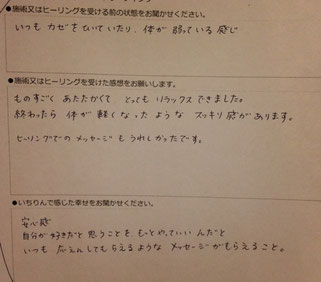 ●施術又はヒーリングを受ける前の状態をお聞かせください。
いつもカゼをひいていたり、体が弱っている感じ
●施術又はヒーリングを受けた感想をお願いします。
ものすごくあたたかくて、とってもリラックスできました。
終わったら体が軽くなったようなスッキリ感があります。
ヒーリングでのメッセージもうれしかったです。
●いちりんで感じた幸せをお聞かせください。
安心感
自分が好きだと思うことを、もっとやっていいんだと
いつも応えんしてもらえるようなメッセージがもらえること。